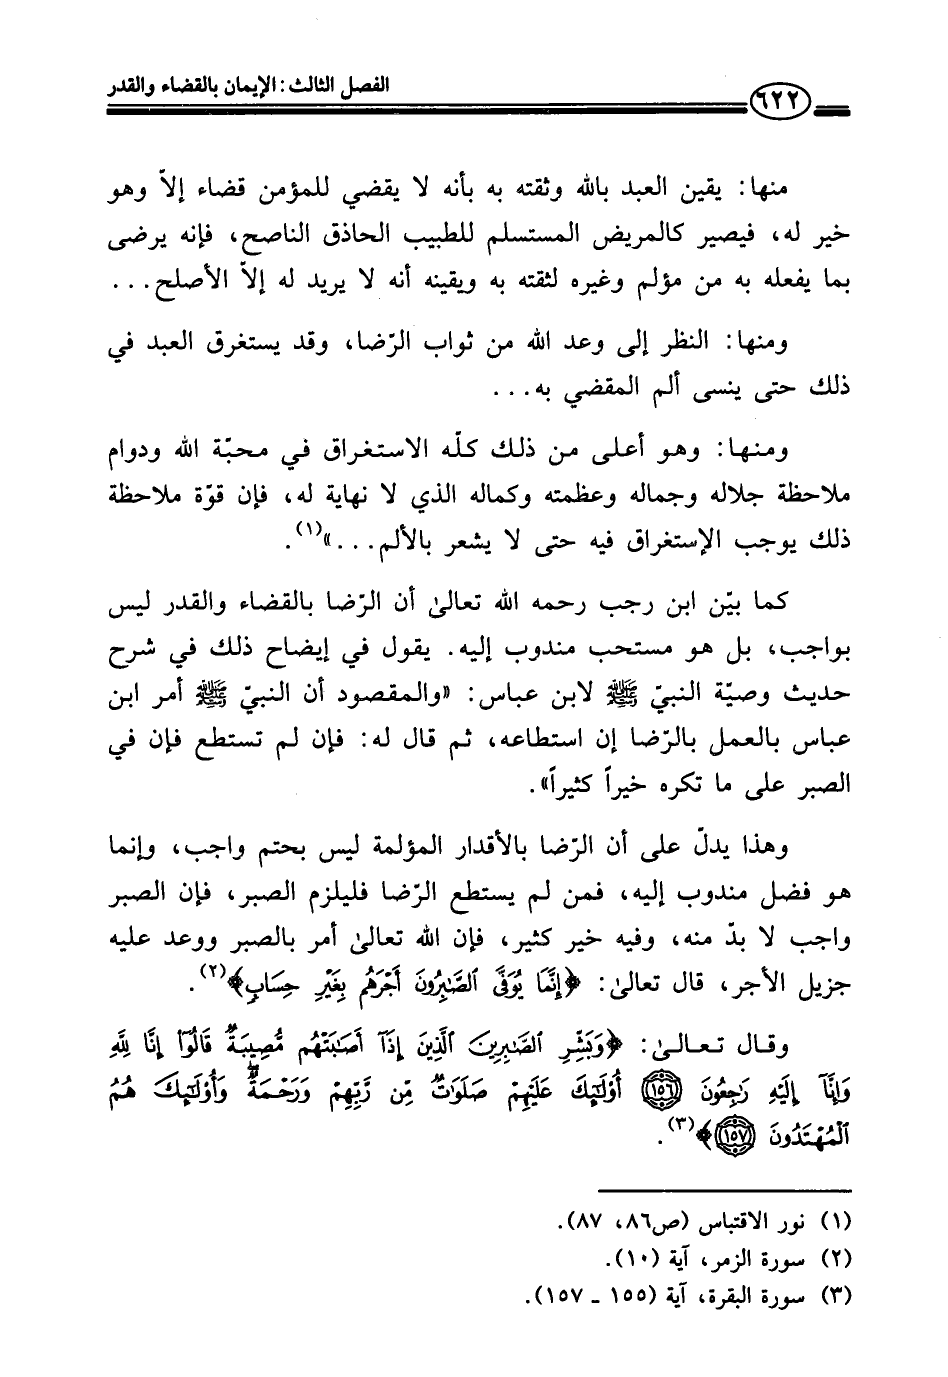 الفصل الثالث: الإيمان بالقضاء والقدر
٦٢٢
منها: يقين العبد بالله وثقته به بأنه لا يقضي للمؤمن قضاء إلاّ وهو
خير له، فيصير كالمريض المستسلم للطبيب الحاذق الناصح، فإنه يرضى
بما يفعله به من مؤلم وغيره لثقته به ويقينه أنه لا يريد له إلاّ الأصلح...
ومنها: النظر إلى وعد الله من ثواب الرّضا، وقد يستغرق العبد في
ذلك حتى ينسى ألم المقضي به...
ومنها: وهو أعلى من ذلك كلّه الاستغراق في محبّة الله ودوام
ملاحظة جلاله وجماله وعظمته وكماله الذي لا نهاية له، فإن قوّة ملاحظة
ذلك يوجب الإستغراق فيه حتى لا يشعر بالألم...»(١).
كما بيّن ابن رجب رحمه الله تعالىٰ أن الرّضا بالقضاء والقدر ليس
بواجب، بل هو مستحب مندوب إليه. يقول في إيضاح ذلك في شرح
حديث وصيّة النبيّ ﷺ لابن عباس: «والمقصود أن النبيّ ﷺ أمر ابن
عباس بالعمل بالرّضا إن استطاعه، ثم قال له: فإن لم تستطع فإن في
الصبر على ما تكره خيراً كثيراً».
وهذا يدلّ على أن الرّضا بالأقدار المؤلمة ليس بحتم واجب، وإنما
هو فضل مندوب إليه، فمن لم يستطع الرّضا فليلزم الصبر، فإن الصبر
واجب لا بدّ منه، وفيه خير كثير، فإن الله تعالىٰ أمر بالصبر ووعد عليه
جزيل الأجر، قال تعالىٰ: ﴿إِنَّمَا يُوَفَّى ٱلصَّٰبِرُونَ أَجْرَهُم بِغَيْرِ حِسَابٍ﴾(٢).
وقال تعالىٰ: ﴿وَبَشِّرِ ٱلصَّٰبِرِينَ ٱلَّذِينَ إِذَآ أَصَٰبَتْهُم مُّصِيبَةٌ قَالُوٓا۟ إِنَّا لِلَّهِ
وَإِنَّآ إِلَيْهِ رَٰجِعُونَ ١٥٦ أُو۟لَٰٓئِكَ عَلَيْهِمْ صَلَوَٰتٌ مِّن رَّبِّهِمْ وَرَحْمَةٌ وَأُو۟لَٰٓئِكَ هُمُ
ٱلْمُهْتَدُونَ ١٥٧﴾(٣).
(١) نور الاقتباس (ص٨٦، ٨٧).
(٢) سورة الزمر، آية (١٠).
(٣) سورة البقرة، آية (١٥٥ ـ ١٥٧).